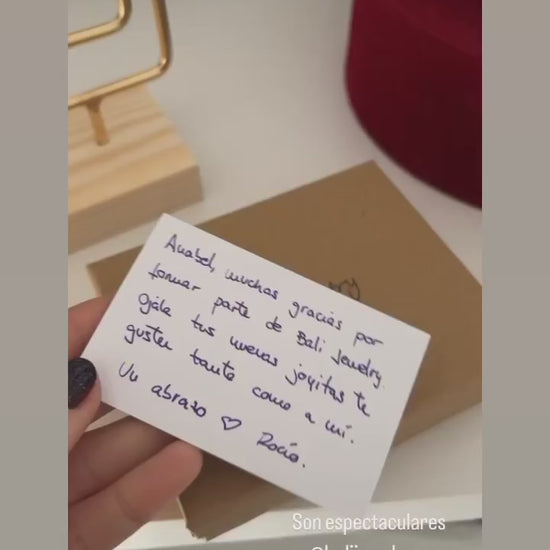 Anabel, muchas gracias por
formar parte de Bali Jewelry.
Ojála tus nuevas joyitas te
gusten tanto como a mí.
Un abrazo ♡ Rocío.
Son espectaculares